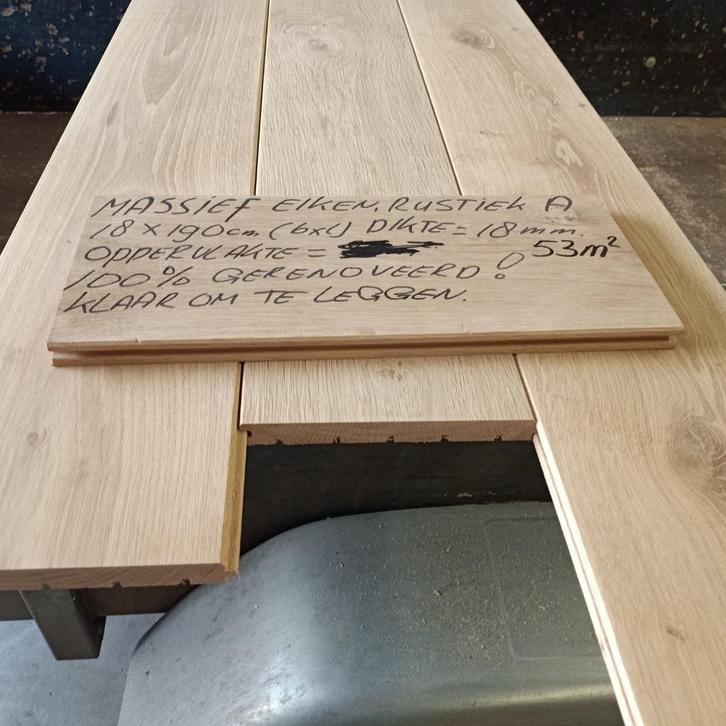 MASSIEF EIKEN, RUSTIEK A
18 X 190cm (bxl) DIKTE = 18mm.
OPPERVLAKTE = 53m²
100% GERENOVEERD!
KLAAR OM TE LEGGEN.